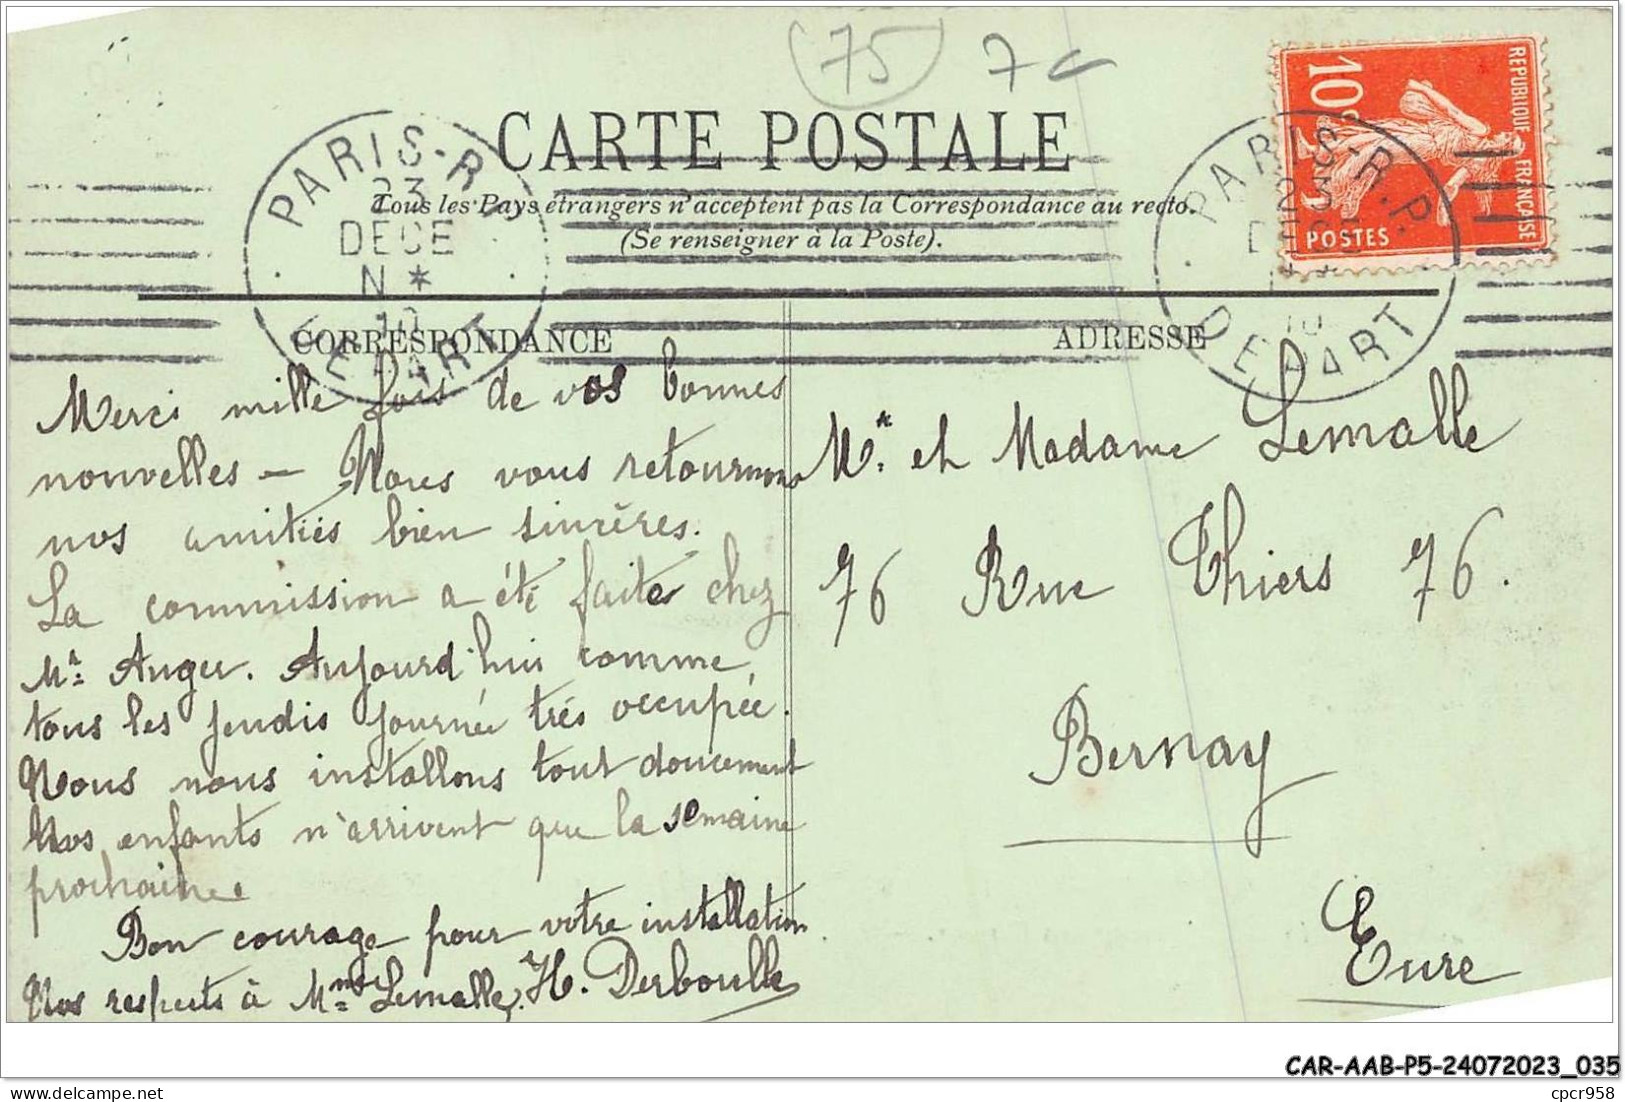 75 7c
CARTE POSTALE
Tous les Pays étrangers n'acceptent pas la Correspondance au recto.
(Se renseigner à la Poste).
REPUBLIQUE FRANÇAISE
10c
POSTES
PARIS-R.P.
23
DECE
N *
10
DEPART
PARIS-R.P.
23
DECE
10
DEPART
CORRESPONDANCE
Merci mille fois de vos bonnes
nouvelles — Nous vous retournons
nos amitiés bien sincères.
La commission a été faite chez
Mr. Auger. Aujourd'hui comme
tous les jeudis journée très occupée.
Nous nous installons tout doucement
Nos enfants n'arrivent que la semaine
prochaine.
Bon courage pour votre installation
Nos respects à Mme Lemalle. H. Derboulle
ADRESSE
Mr. et Madame Lemalle
76 Rue Thiers 76.
Bernay
Eure
CAR-AAB-P5-24072023_035
cpcr958